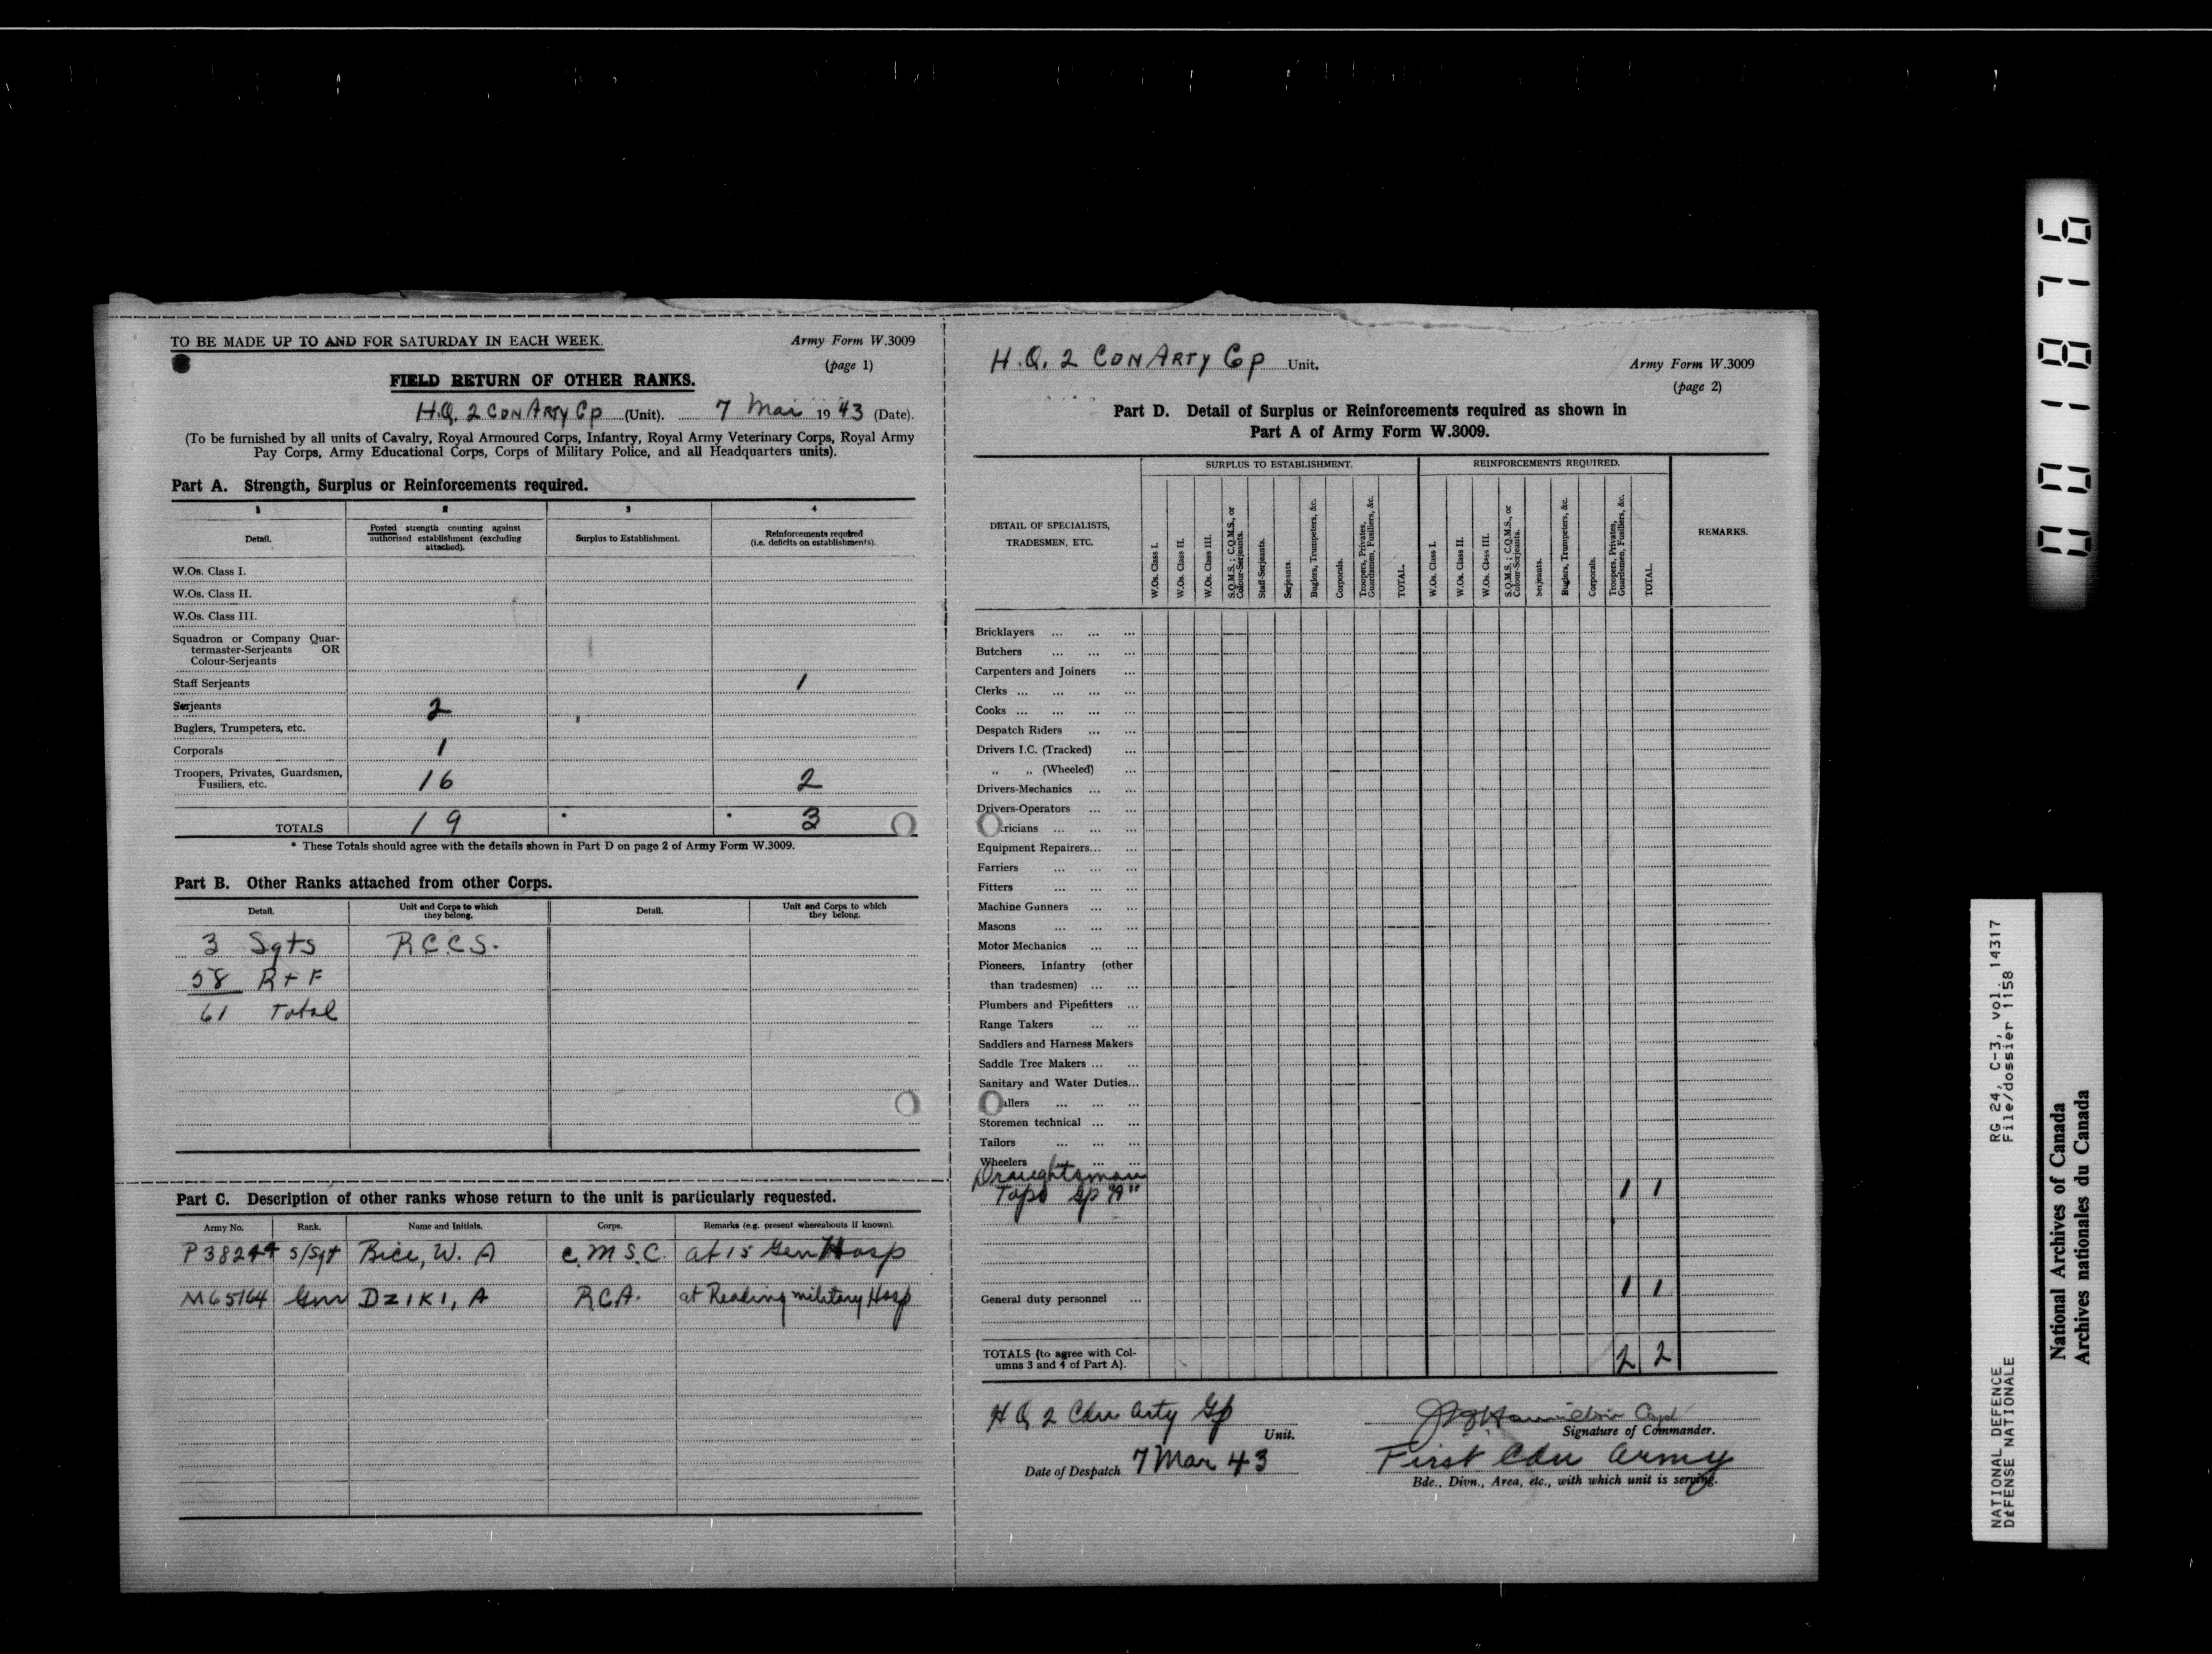 TO BE MADE UP TO AND FOR SATURDAY IN EACH WEEK.
Army Form W.3009
(page 1)
FIELD RETURN OF OTHER RANKS.
H.Q. 2 CDN ARTY Gp (Unit). 7 Mar 19 43 (Date).
(To be furnished by all units of Cavalry, Royal Armoured Corps, Infantry, Royal Army Veterinary Corps, Royal Army
Pay Corps, Army Educational Corps, Corps of Military Police, and all Headquarters units).
Part A. Strength, Surplus or Reinforcements required.
1 2 3 4
Detail. Posted strength counting against authorised establishment (excluding attached). Surplus to Establishment. Reinforcements required (i.e. deficits on establishments).
W.Os. Class I.
W.Os. Class II.
W.Os. Class III.
Squadron or Company Quar-
termaster-Serjeants OR
Colour-Serjeants
Staff Serjeants 1
Serjeants 2
Buglers, Trumpeters, etc.
Corporals 1
Troopers, Privates, Guardsmen,
Fusiliers, etc. 16 2
TOTALS 19 * * 3
* These Totals should agree with the details shown in Part D on page 2 of Army Form W.3009.
Part B. Other Ranks attached from other Corps.
Detail. Unit and Corps to which they belong. Detail. Unit and Corps to which they belong.
3 Sgts R.C.C.S.
58 R + F
61 Total
Part C. Description of other ranks whose return to the unit is particularly requested.
Army No. Rank. Name and Initials. Corps. Remarks (e.g. present whereabouts if known).
P38244 S/Sgt Bice, W. A C.M.S.C. at 15 Gen Hosp
M65164 Gnr DZIKI, A R.C.A. at Reading military Hosp
H.Q. 2 CDN ARTY Gp Unit.
Army Form W.3009
(page 2)
Part D. Detail of Surplus or Reinforcements required as shown in
Part A of Army Form W.3009.
DETAIL OF SPECIALISTS,
TRADESMEN, ETC.
SURPLUS TO ESTABLISHMENT. REINFORCEMENTS REQUIRED.
REMARKS.
W.Os. Class I.
W.Os. Class II.
W.Os. Class III.
S.Q.M.S.; C.Q.M.S., or Colour-Serjeants.
Staff-Serjeants.
Serjeants.
Buglers, Trumpeters, &c.
Corporals.
Troopers, Privates, Guardsmen, Fusiliers, &c.
TOTAL.
W.Os. Class I.
W.Os. Class II.
W.Os. Class III.
S.Q.M.S.; C.Q.M.S., or Colour-Serjeants.
Serjeants.
Buglers, Trumpeters, &c.
Corporals.
Troopers, Privates, Guardsmen, Fusiliers, &c.
TOTAL.
Bricklayers ... ... ...
Butchers ... ... ...
Carpenters and Joiners ...
Clerks ... ... ... ...
Cooks ... ... ... ...
Despatch Riders ... ...
Drivers I.C. (Tracked) ...
„ „ (Wheeled) ...
Drivers-Mechanics ... ...
Drivers-Operators ... ...
ricians ... ... ...
Equipment Repairers... ...
Farriers ... ... ...
Fitters ... ... ...
Machine Gunners ... ...
Masons ... ... ...
Motor Mechanics ... ...
Pioneers, Infantry (other
than tradesmen) ... ...
Plumbers and Pipefitters ...
Range Takers ... ...
Saddlers and Harness Makers
Saddle Tree Makers ... ...
Sanitary and Water Duties...
allers ... ... ...
Storemen technical ... ...
Tailors ... ... ...
Wheelers ... ...
Draughtsman
Topo Gp "A" 1 1
General duty personnel ... 1 1
TOTALS (to agree with Col-
umns 3 and 4 of Part A). 2 2
H Q 2 Cdn Arty Gp
Unit.
Hamilton Capt
Signature of Commander.
Date of Despatch 7 Mar 43
First Cdn Army
Bde., Divn., Area, etc., with which unit is serving.
001876
RG 24, C-3, vol. 14317
File/dossier 1158
NATIONAL DEFENCE
DÉFENSE NATIONALE
National Archives of Canada
Archives nationales du Canada